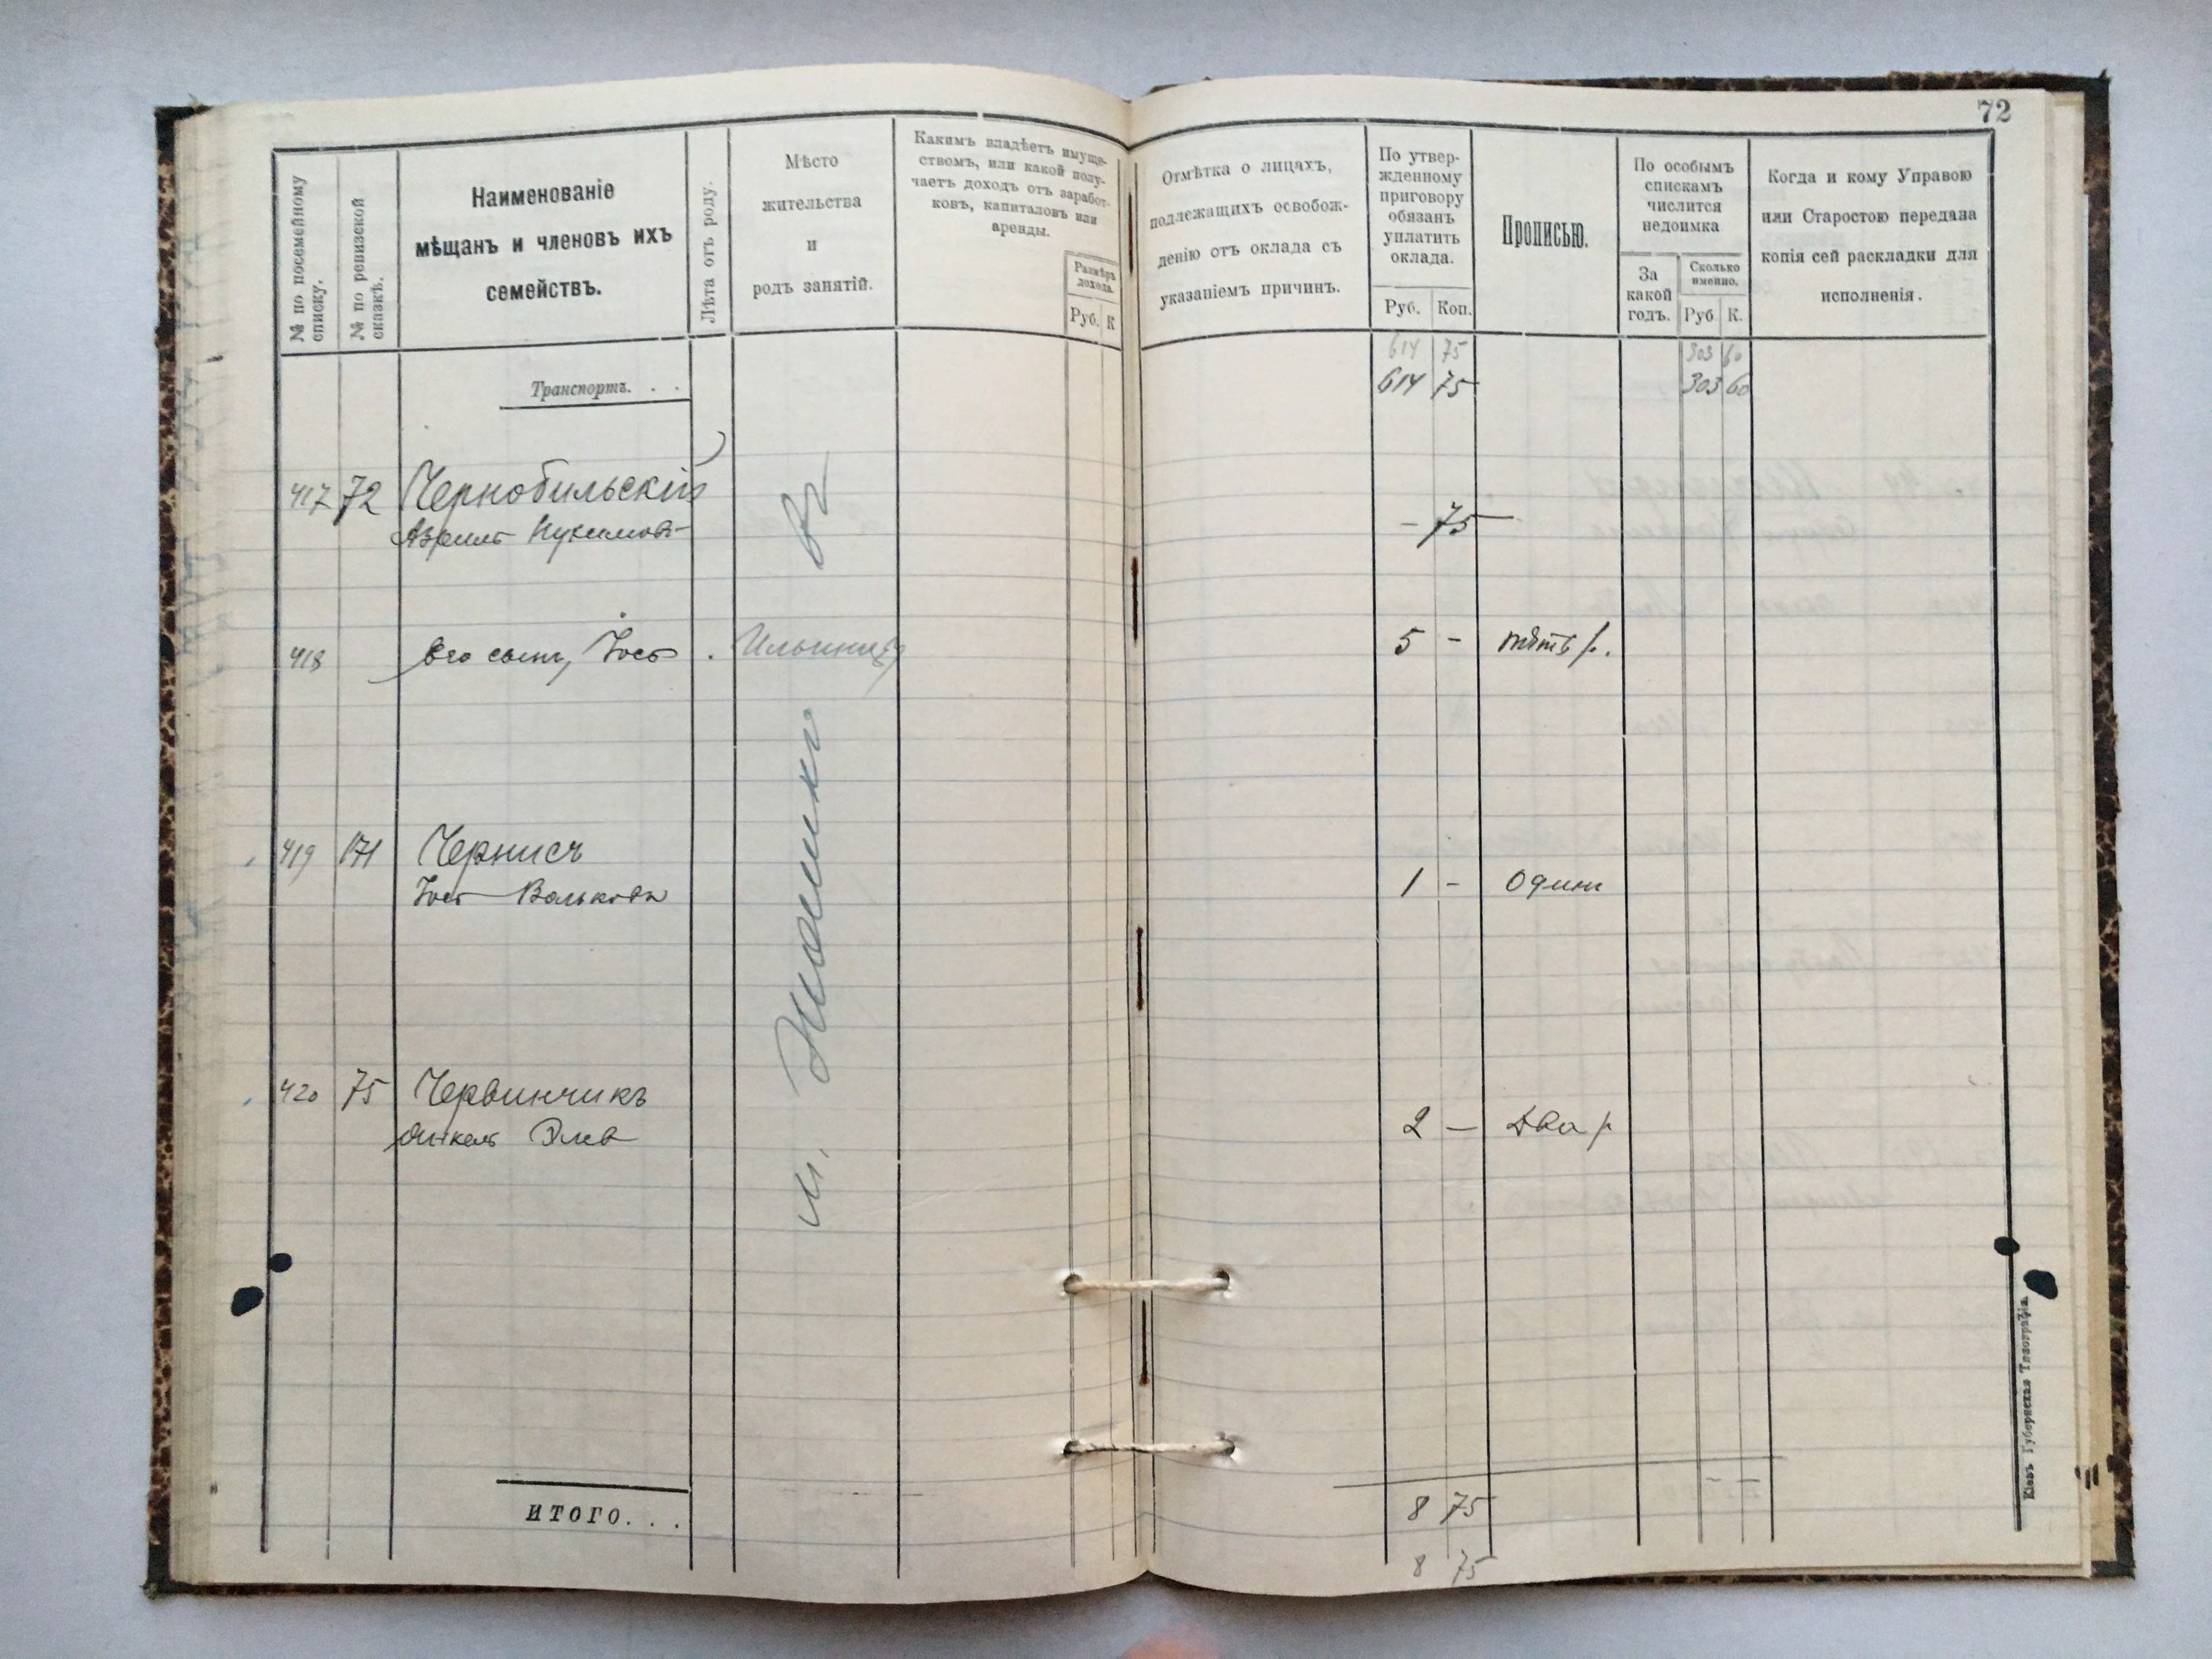 72
№ по посемейному
списку.
№ по ревизской
сказкѣ.
Наименованіе
мѣщанъ и членовъ ихъ
семействъ.
Лѣта отъ роду.
Мѣсто
жительства
и
родъ занятій.
Какимъ владѣетъ имуще-
ствомъ, или какой полу-
чаетъ доходъ отъ заработ-
ковъ, капиталовъ или
аренды.
Размѣръ
дохода.
Руб. К
Отмѣтка о лицахъ,
подлежащихъ освобож-
денію отъ оклада съ
указаніемъ причинъ.
По утвер-
жденному
приговору
обязанъ
уплатить
оклада.
Руб. Коп.
Прописью.
По особымъ
спискамъ
числится
недоимка
За
какой
годъ.
Сколько
именно.
Руб К.
Когда и кому Управою
или Старостою передана
копія сей раскладки для
исполненія.
614 75 303 60
Транспортъ. . . 614 75 303 60
417 72 Чернобильскій
Азриль - 75
418 Его сынъ, Іось . 5 - пять р.
419 171 Чернисъ
Іось Вольковъ 1 - Одинъ
420 75 Червинчикъ
Янкель 2 — Два р.
въ
м.
ИТОГО. . . 8 75
8 75
Кіевъ Губернская Типографія.